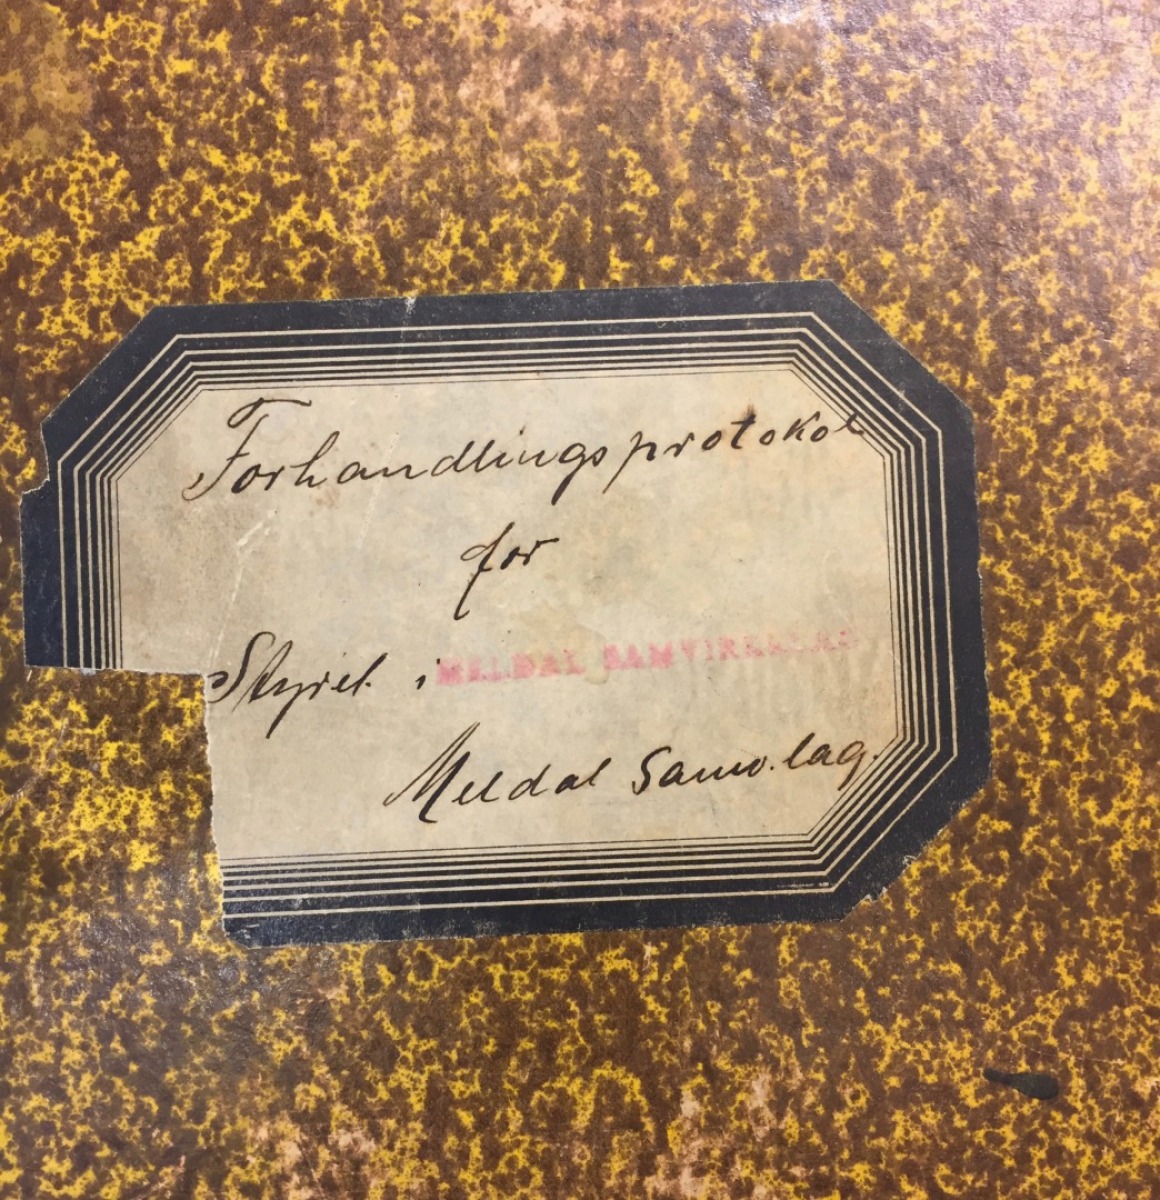 Forhandlingsprotokol
for
Styret i MELDAL SAMVIRKELAG
Meldal Samv.lag.